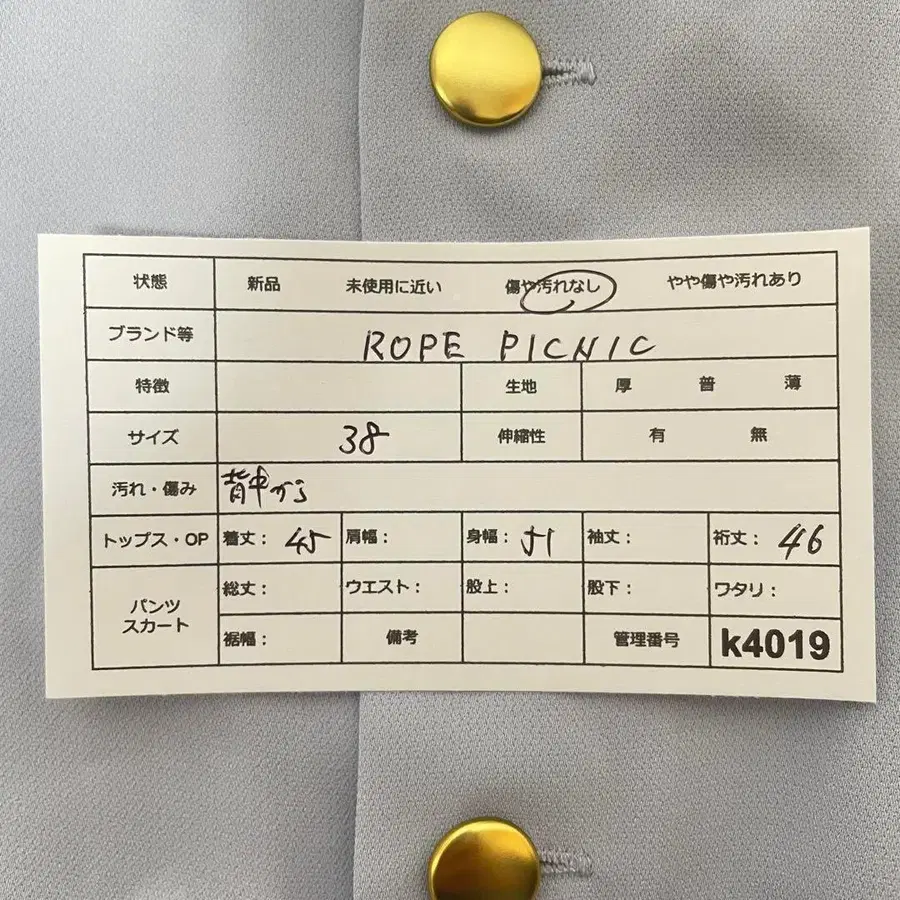 状態 新品 未使用に近い 傷や汚れなし やや傷や汚れあり
ブランド等 ROPE PICNIC
特徴 生地 厚 普 薄
サイズ 38 伸縮性 有 無
汚れ・傷み 背中から
トップス・OP 着丈： 45 肩幅： 身幅： 51 袖丈： 裄丈： 46
パンツ スカート 総丈： ウエスト： 股上： 股下： ワタリ：
裾幅： 備考 管理番号 k4019